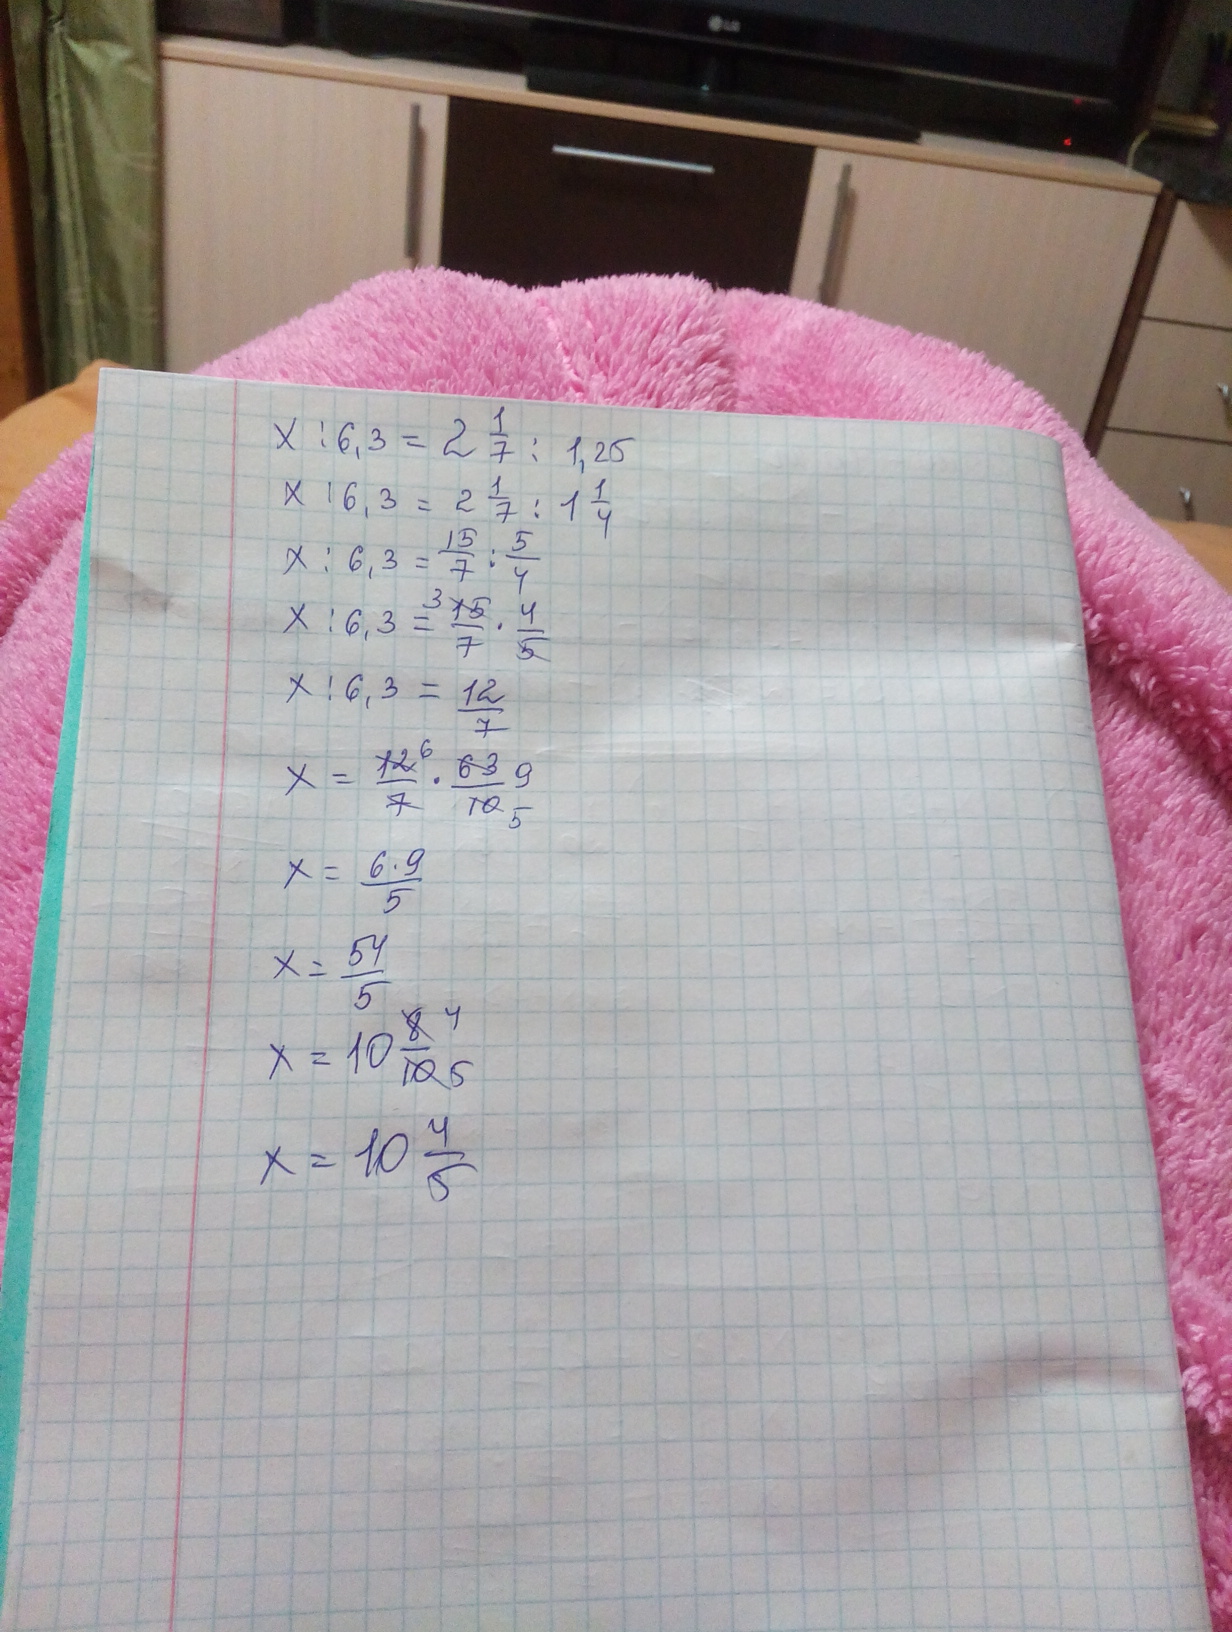 LG
x : 6,3 = 2 1/7 : 1,25
x : 6,3 = 2 1/7 : 1 1/4
x : 6,3 = 15/7 : 5/4
x : 6,3 = 3 15/7 · 4/5
x : 6,3 = 12/7
x = 12 6/7 · 63 9/10 5
x = 6·9/5
x = 54/5
x = 10 8 4/10 5
x = 10 4/5